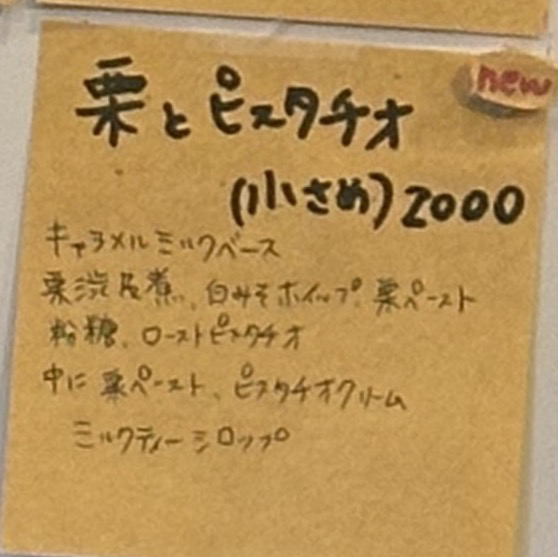 new
栗とピスタチオ
(小さめ) 2000
キャラメルミルクベース
栗渋皮煮、白みそホイップ、栗ペースト
粉糖、ローストピスタチオ
中に 栗ペースト、ピスタチオクリーム
ミルクティーシロップ